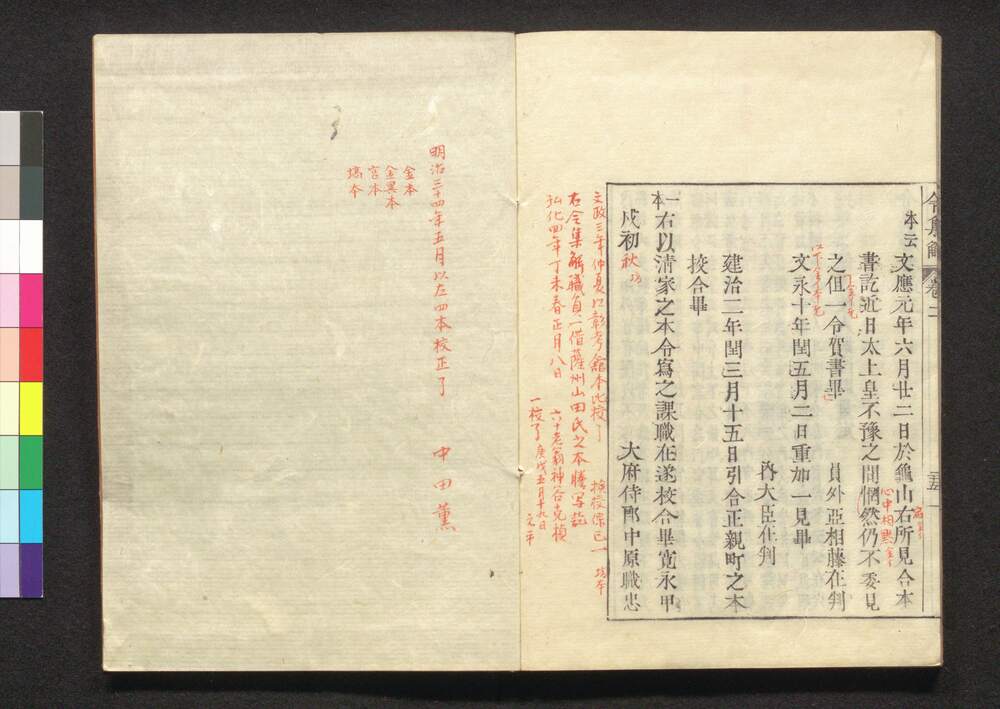 令集解 卷二
五十一
本云
文應元年六月廿二日於龜山右所見合本
書訖近日太上皇不豫之間惘然仍不委見
之但一令賀書畢
員外亞相藤在判
文永十年閏五月二日重加一見畢
内大臣在判
建治二年閏三月十五日引合正親町之本
挍合畢
一本右以清家之本令寫之課職在遂校合畢寛永甲
戌初秋
大府侍郎中原職忠
文政三年仲夏以彰考館本比校了
右令集解職員一借薩州山田氏之本謄写訖
弘化四年丁未春正月八日
六十老翁神谷克禎
一挍了 庚戌五月十九日
文平
金本
金異本
宮本
塙本
明治三十四年五月以左四本校正了 中田薫